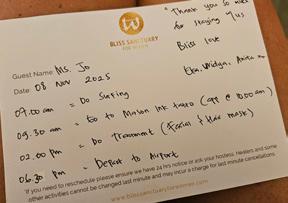 Thank you so much
for staying w/ us
Bliss love
BLISS SANCTUARY
FOR WOMEN
Guest Name: Ms. Jo
Date: 08 Nov 2025
07.00 am = Do Surfing
09.30 am = Go to Malon Ink tattoo (app @ 10.00 am)
02.00 pm = Do Treatment (Facial & Hair mask)
06.30 pm = Depart to Airport
*If you need to reschedule please ensure we have 24 hrs notice or ask your hostess. Healers and some
other activities cannot be changed last minute and may incur a charge for last minute cancellations.
www.blisssanctuaryforwomen.com